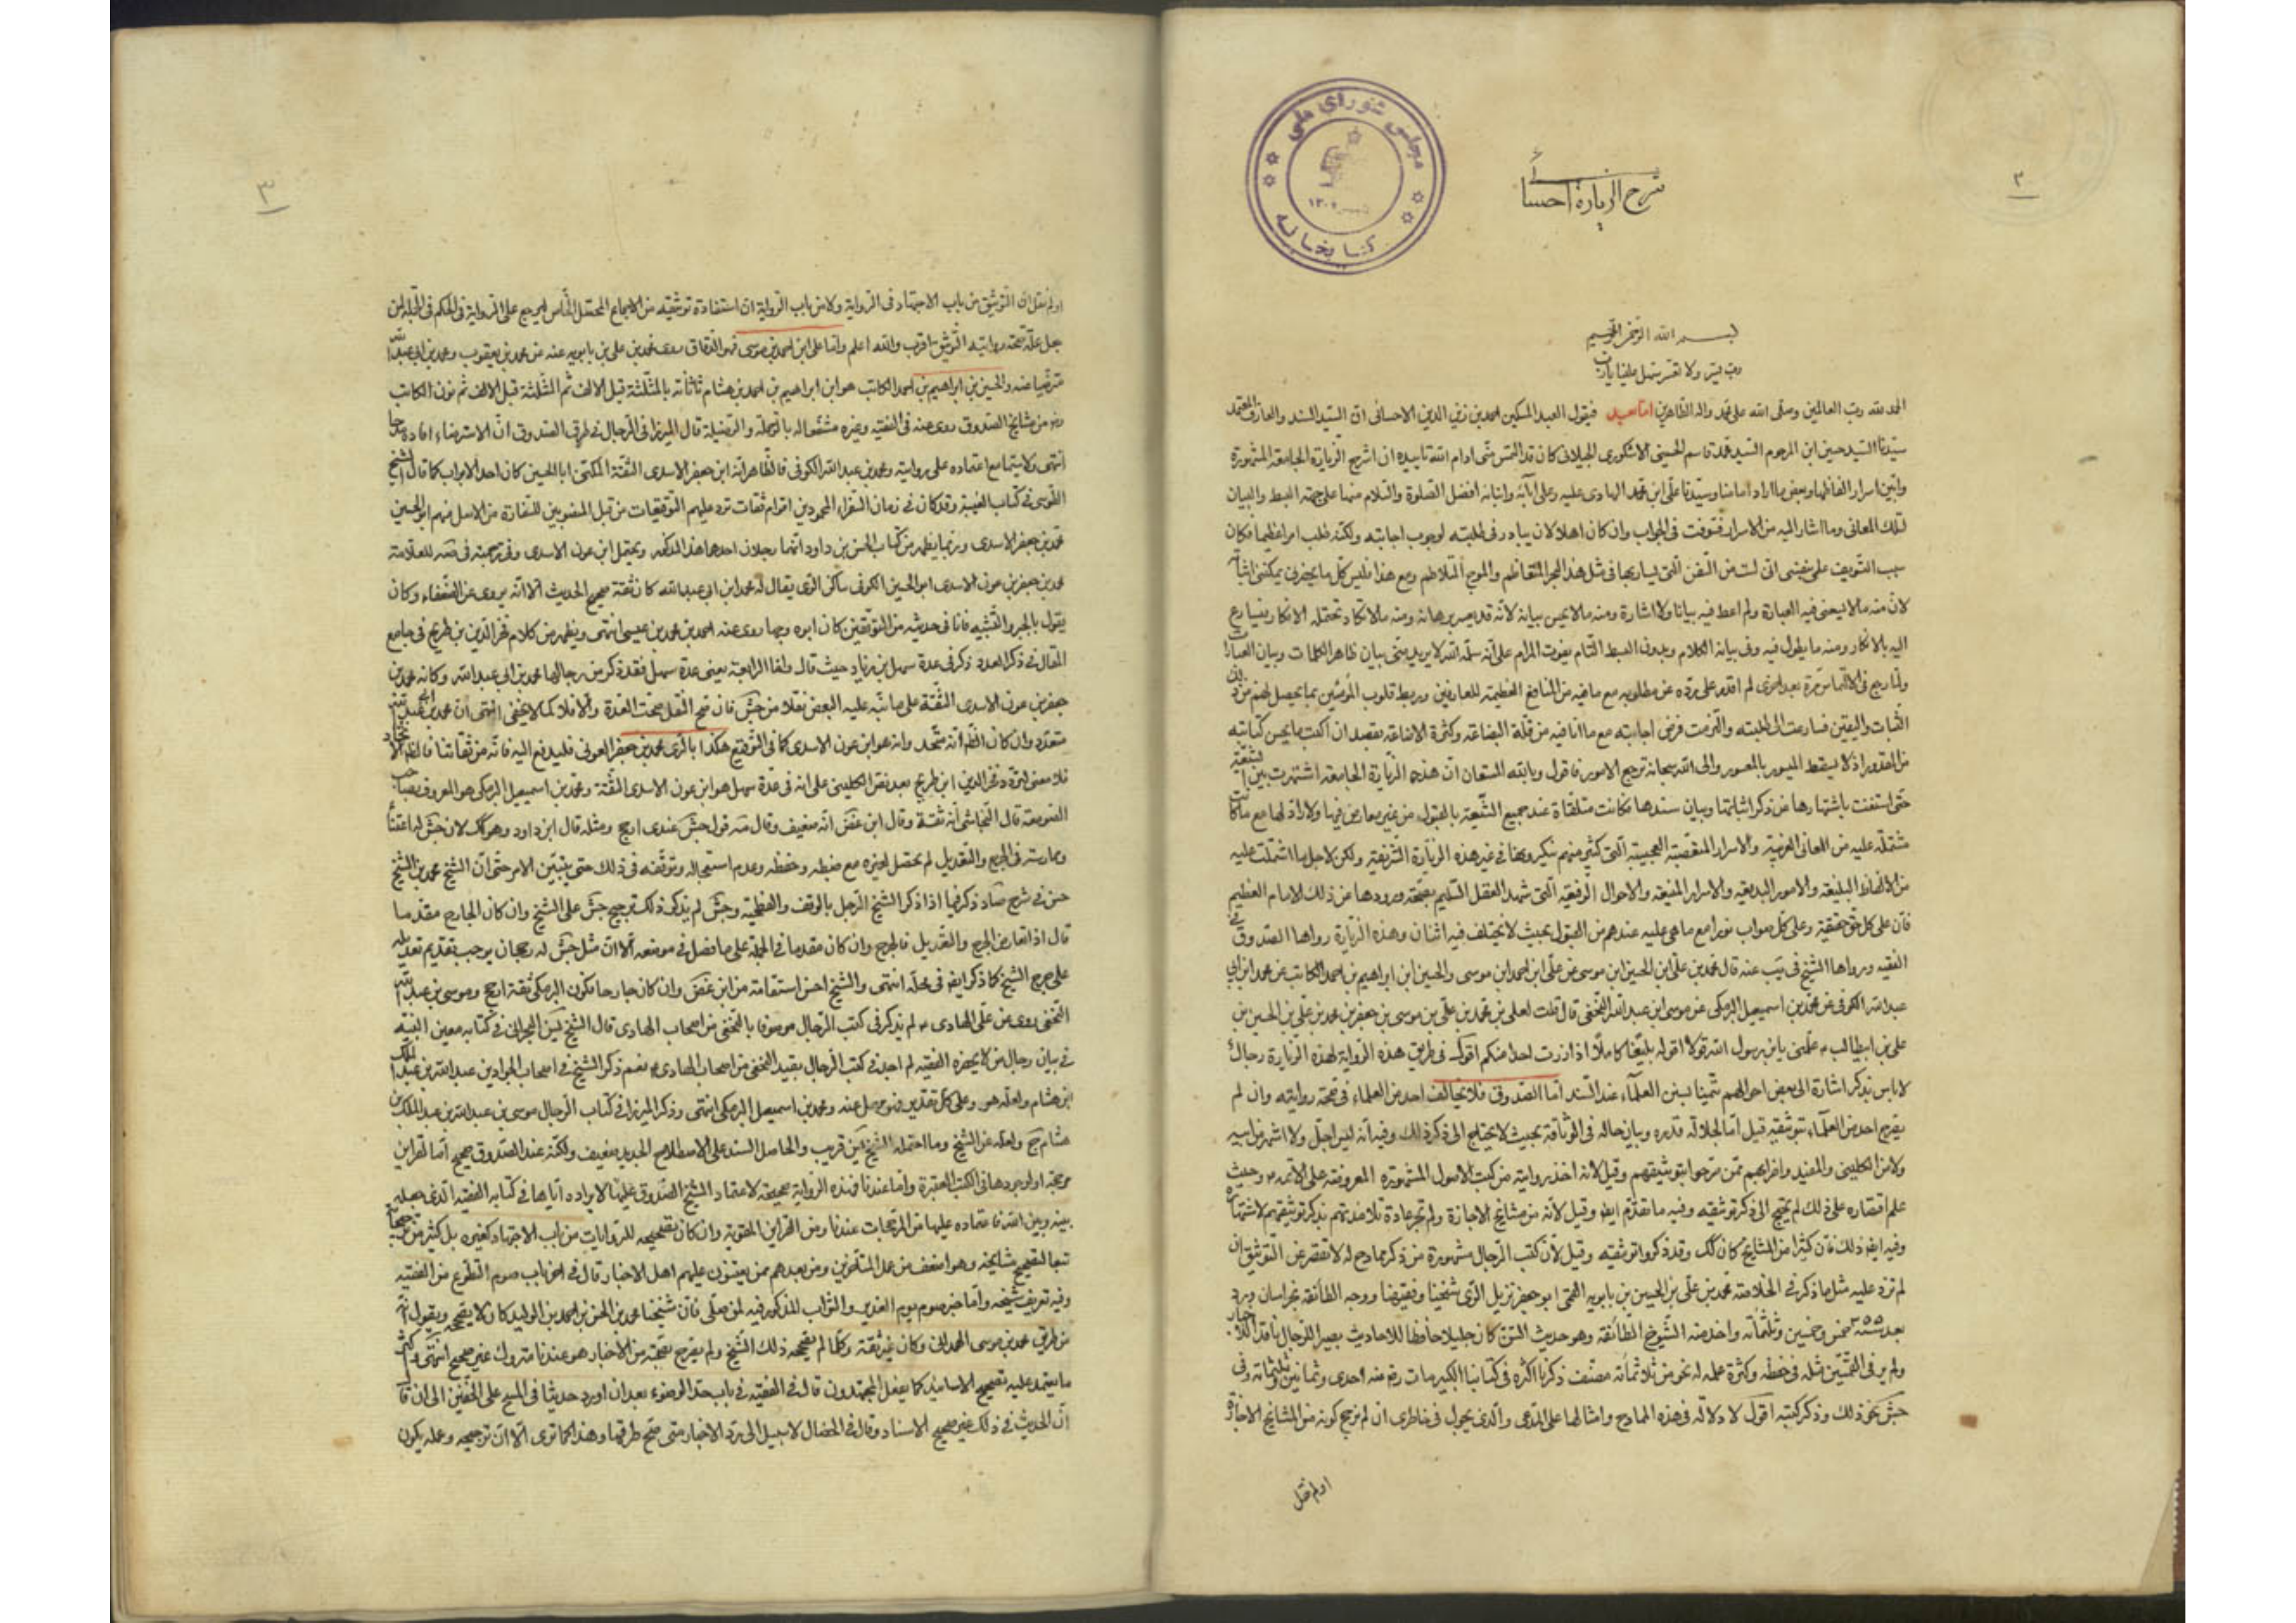 ٢
شرح الزيارة احسائى
مجلس شورای ملی
کتابخانه
بسم الله الرحمن الرحيم
رب يسر ولا تعسر سهل علينا يا رب
الحمد لله رب العالمين وصلى الله على محمد واله الطاهرين اما بعد فيقول العبد المسكين احمد بن زين الدين الاحسائى ان السيد السند والعارف المعتمد
سيدنا السيد حسين ابن المرحوم السيد محمد قاسم الحسينى الاشكورى الجيلانى كان قد التمس منى ادام الله تاييده ان اشرح الزيارة الجامعة المشهورة
وابين اسرار الفاظها وبعض ما اراد امامنا وسيدنا على ابن محمد الهادى عليه وعلى آبائه وابنائه افضل الصلوة والسلام منها على جهة البسط والبيان
لتلك المعانى وما اشار اليه من الاسرار فتوقفت فى الجواب وان كان اهلا لان يبادر فى طلبته لوجوب اجابته ولكنه طلب امرا عظيما فكان
سبب التسويف على نفسى انى لست من السفن التى يسار بها فى مثل هذا البحر المتعاظم والموج المتلاطم ومع هذا فليس كل ما يحضرنى يمكننى اثباته
لان منه ما لا يعنى فيه العبارة ولم اعط فيه بيانا ولا اشارة ومنه ما لا يحسن بيانه لانه قد يعسر برهانه ومنه ما لا تكاد تحتمله الافكار فيسارع
اليه بالانكار ومنه ما يطول فيه وفى بيانه الكلام وبدون البسط التام يفوت المرام على انه سلمه الله لا يريد منى بيان ظاهر الكلمات وبيان العبارات
ولما رجع فى الالتماس مرة بعد اخرى لم اقدر على رده عن مطلوبه مع ما فيه من المنافع العظيمة للعارفين وربط قلوب المؤمنين بما يحصل لهم من
الثبات واليقين فسارعت الى طلبته والتزمت فرض اجابته مع ما انا فيه من قلة البضاعة وكثرة الاضاعة بقصد ان اكتب ما يحسن كتابته
من المقدور اذ لا يسقط الميسور بالمعسور والى الله سبحانه ترجع الامور فاقول وبالله المستعان ان هذه الزيارة الجامعة اشتهرت بين الشيعة
حتى استغنت باشتهارها عن ذكر اثباتها وبيان سندها فكانت متلقاة عند جميع الشيعة بالقبول من غير معارض فيها ولا راد لها مع ما كانت
مشتملة عليه من المعانى الغريبة والاسرار المستصعبة العجيبة التى كثير منهم ينكرونها فى غير هذه الزيارة الشريفة ولكن لاجل ما اشتملت عليه
من الالفاظ البليغة والامور البديعة والاسرار المنيعة والاحوال الرفيعة التى شهد العقل السليم بصحة ورودها عن ذلك الامام العظيم
فان على كل حق حقيقة وعلى كل صواب نورا مع ما هى عليه عندهم من القبول بحيث لا يختلف فيه اثنان وهذه الزيارة رواها الصدوق فى
الفقيه ورواها الشيخ فى يب عنه قال محمد بن على ابن الحسين ابن موسى عن على ابن احمد ابن موسى والحسين ابن ابراهيم بن احمد الكاتب عن محمد ابن ابى
عبد الله الكوفى عن محمد بن اسمعيل البرمكى عن موسى ابن عبد الله النخعى قال قلت لعلى بن محمد بن على بن موسى بن جعفر بن محمد بن على بن الحسين بن
على بن ابيطالب علمنى يا بن رسول الله قولا اقوله بليغا كاملا اذا زرت احدا منكم اقول فى طريق هذه الرواية لهذه الزيارة رجال
لا باس بذكر اشارة الى بعض احوالهم تيمنا بسنن العلماء عند السند اما الصدوق فلا يخالف احد من العلماء فى صحة روايته وان لم
يصرح احد من العلماء بتوثيقه قيل اما لجلالة قدره وبيان حاله فى الوثاقة بحيث لا يحتاج الى ذكر ذلك وفيه انه ليس اجل ولا اشهر من ابيه
ولا من الكلينى والمفيد واضرابهم ممن صرحوا بتوثيقهم وقيل لانه اخذ روايته من كتب الاصول المشهورة المعروضة على الائمة وحيث
علم اقتصاره على ذلك لم يحتج الى ذكر توثيقه وفيه ما تقدم ايضا وقيل لانه من مشايخ الاجازة ولم تجر عادة تلامذتهم بذكر توثيقهم لاشتهاره
وفيه ايضا ذلك فان كثيرا من المشايخ كان كك وقد ذكروا توثيقه وقيل لان كتب الرجال مشهورة من ذكر ممادح له لا تقصر عن التوثيق ان
لم تزد عليه مثل ما ذكر فى الخلاصة محمد بن على بن الحسين بن بابويه القمى ابو جعفر نزيل الرى شيخنا وفقيهنا ووجه الطائفة بخراسان ورد
بغداد سنة ٣٥٥ خمس وخمسين وثلثمائة واخذ منه الشيوخ الطائفة وهو حديث السن كان جليلا حافظا للاحاديث بصيرا للرجال ناقدا للاخبار
ولم ير فى القميين مثله فى حفظه وكثرة علمه له نحو من ثلاثمائة مصنف ذكرنا اكثره فى كتابنا الكبير مات رضى الله عنه احدى وثمانين وثلثمائة وفى
جش نحو ذلك وذكر كتبه اقول لا دلالة فى هذه الممادح وامثالها على المدعى والذى يجول فى خاطرى ان لم نرجح كونه من المشايخ الاجازة
او لم نقل
٣
او لم نقل ان التوثيق من باب الاجتهاد فى الرواية ولا من باب الرواية ان استفادة توثيقه من الاجماع المحصل الخاص المرجح على الرواية فى الحكم
جل علة صحة روايته التوثيق اقرب والله اعلم واما على ابن احمد بن موسى فهو الدقاق روى محمد بن على بن بابويه عنه عن محمد بن يعقوب ومحمد بن ابى عبد الله
مترضيا عنه والحسين بن ابراهيم بن احمد الكاتب هو ابن ابراهيم بن احمد بن هشام تاتانه بالمثلثة قبل الالف ثم المثلثة قبل الالف ثم نون الكاتب
من مشايخ الصدوق روى عنه فى الفقيه وغيره مشفعا له بالرحلة والرضيلة قال الميرزا فى الرجال فى طرق الصدوق ان الاسترضاء افادة
انتهى ولا سيما مع اعتماده على روايته ومحمد بن عبد الله الكوفى فالظاهر انه ابن جعفر الاسدى الثقة المكنى ابا الحسين كان احد الابواب كما قال الشيخ
الطوسى فى كتاب الغيبة وقد كان فى زمان السفراء المحمودين اقوام ثقات ترد عليهم التوقيعات من قبل المنصوبين للسفارة من الاصل منهم ابو الحسين
محمد بن جعفر الاسدى وربما يظهر من كتاب الحسن بن داود انهما رجلان احدهما هذا المذكور ويحتمل ابن عون الاسدى وفى ترجمته فى صه للعلامة
محمد بن جعفر بن عون الاسدى ابو الحسين الكوفى ساكن الرى يقال له محمد ابن ابى عبد الله كان ثقة صحيح الحديث الا انه يروى عن الضعفاء وكان
يقول بالجبر والتشبيه فانا فى حديثه من المتوقفين كان ابوه وجها روى عنه احمد بن محمد بن عيسى انتهى ويظهر من كلام فخر الدين بن طريح فى جامع
المقال فى ذكر العدد ذكر فى عدة سهل بن زياد حيث قال واما الرابعة يعنى عدة سهل فقد ذكر من رجالها محمد بن ابى عبد الله وكانه محمد بن
جعفر بن عون الاسدى الثقة على ما نبه عليه البعض نقلا من جش فان صح النقل صحت العدة والا فلا كما لا يخفى انتهى ان محمد بن ابى عبد الله
متعدد وان كان الظاهر انه متحد وانه هو ابن عون الاسدى كما فى التوقيع هكذا بالرى محمد بن جعفر العونى فليدفع اليه فانه من ثقاتنا فالظاهر الاتحاد
فلا معنى لتردد فخر الدين ابن طريح بعد نص الكلينى على انه فى عدة سهل هو ابن عون الاسدى الثقة ومحمد بن اسمعيل البرمكى هو المعروف بصاحب
الصومعة قال النجاشى انه ثقة وقال ابن غض انه ضعيف وقال صه قول جش عندى ارجح ومثله قال ابن داود وهو كك لان جش له اعتناء
وممارسة فى الجرح والتعديل لم يحصل لغيره مع ضبطه وحفظه وعدم استعجاله وتوقفه فى ذلك حتى يتبين الامر حتى ان الشيخ محمد بن الشيخ
حسن فى شرح صاد ذكر فيما اذا ذكر الشيخ الرجل بالوقف والفطحية وجش لم يذكر ذلك ترجيح جش على الشيخ وان كان الجارح مقدما
قال اذا تعارض الجرح والتعديل فالجرح وان كان مقدما فى الجملة على ما فصل فى موضعه الا ان مثل جش له رجحان يوجب تقديم تعديله
على جرح الشيخ كما ذكر ايضا فى محله انتهى والشيخ احسن استقامة من ابن غض وان كان جارحا فكون البرمكى ثقة ارجح وموسى بن عبد الله
النخعى روى عن على الهادى لم يذكر فى كتب الرجال موصوفا بالنخعى من اصحاب الهادى قال الشيخ يس البحرانى فى كتابه معين النبيه
فى بيان رجال من لا يحضره الفقيه لم اجد فى كتب الرجال بقيد النخعى من اصحاب الهادى نعم ذكر الشيخ فى اصحاب الجواد بن عبد الله بن عبد الملك
ابن هشام ولعله هو وعلى كل تقدير فهو مهمل عنه ومحمد بن اسمعيل البرمكى انتهى وذكر الميرزا فى كتاب الرجال موسى بن عبد الله بن عبد الملك بن
هشام ج ولعله عن الشيخ وما احتمله الشيخ يس قريب والحاصل السند على الاصطلاح الجديد ضعيف ولكنه عند الصدوق صحيح اما لقراين
موجبة او لوجودها فى الكتب المعتبرة واما عندنا فهذه الرواية صحيحة لاعتماد الشيخ الصدوق عليها لايراده اياها فى كتابه الفقيه الذى جعله
بينه وبين الله فاعتماده عليها من المرجحات عندنا ومن القراين المقوية وان كان تصحيحه للروايات من باب الاجتهاد كغيره بل كثير من
تبعا لتصحيح مشايخه وهو اضعف من عمل المتاخرين ومن بعدهم ممن يعيبون عليهم اهل الاخبار قال فى اخر باب صوم التطوع من الفقيه
وفيه تعريف شيخه واما خبر صوم يوم الغدير والثواب المذكور فيه لمن صلى فان شيخنا محمد بن الحسن بن احمد بن الوليد كان لا يصححه ويقول انه
من طريق محمد بن موسى الهمدانى وكان غير ثقة وكلما لم يصححه ذلك الشيخ ولم يصرح بصحته من الاخبار هو عندنا متروك غير صحيح انتهى وكثير
ما يعتمد عليه تصحيح الاسانيد كما يفعل المجتهدون قال فى الفقيه فى باب حد الوضوء بعد ان اورد حديثا فى المسح على الخفين الى ان قال
ان الحديث فى ذلك غير صحيح الاسناد وقال فى الخصال لا سبيل الى رد الاخبار متى صح طرقها وهذا كما ترى الا ان ترجيحه وعمله يكون